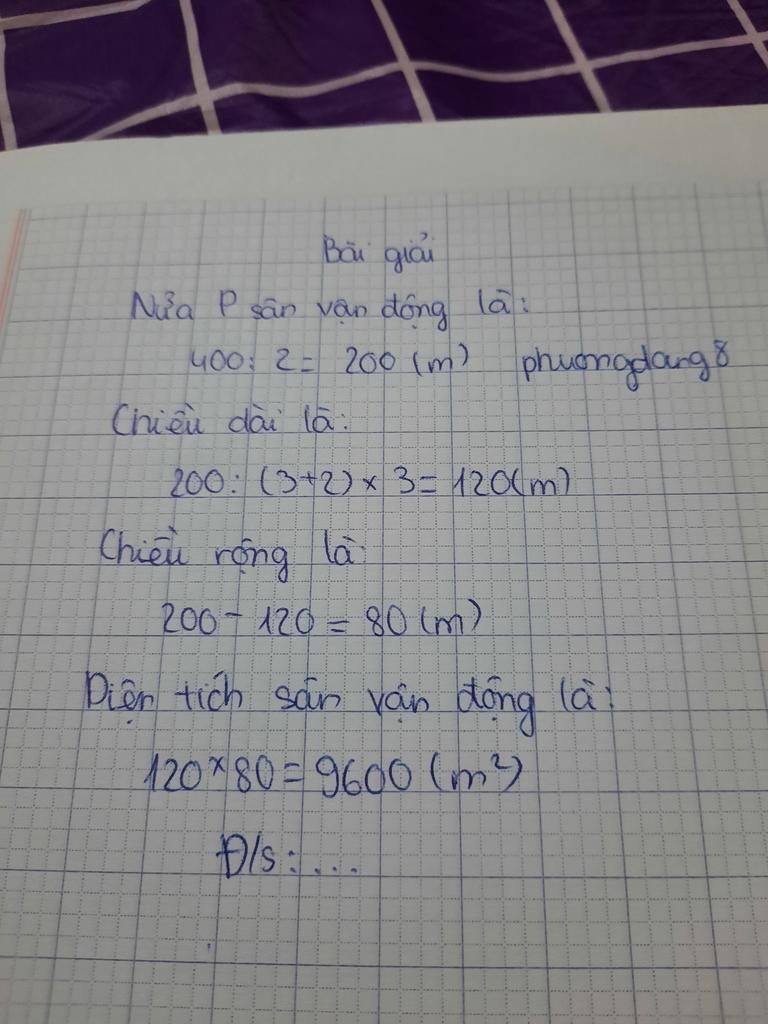 Bài giải
Nửa P sân vận động là:
400: 2 = 200 (m) phuongdang8
Chiều dài là:
200: (3+2) × 3 = 120(m)
Chiều rộng là:
200 - 120 = 80 (m)
Diện tích sân vận động là:
120 × 80 = 9600 (m²)
Đ/s: ...